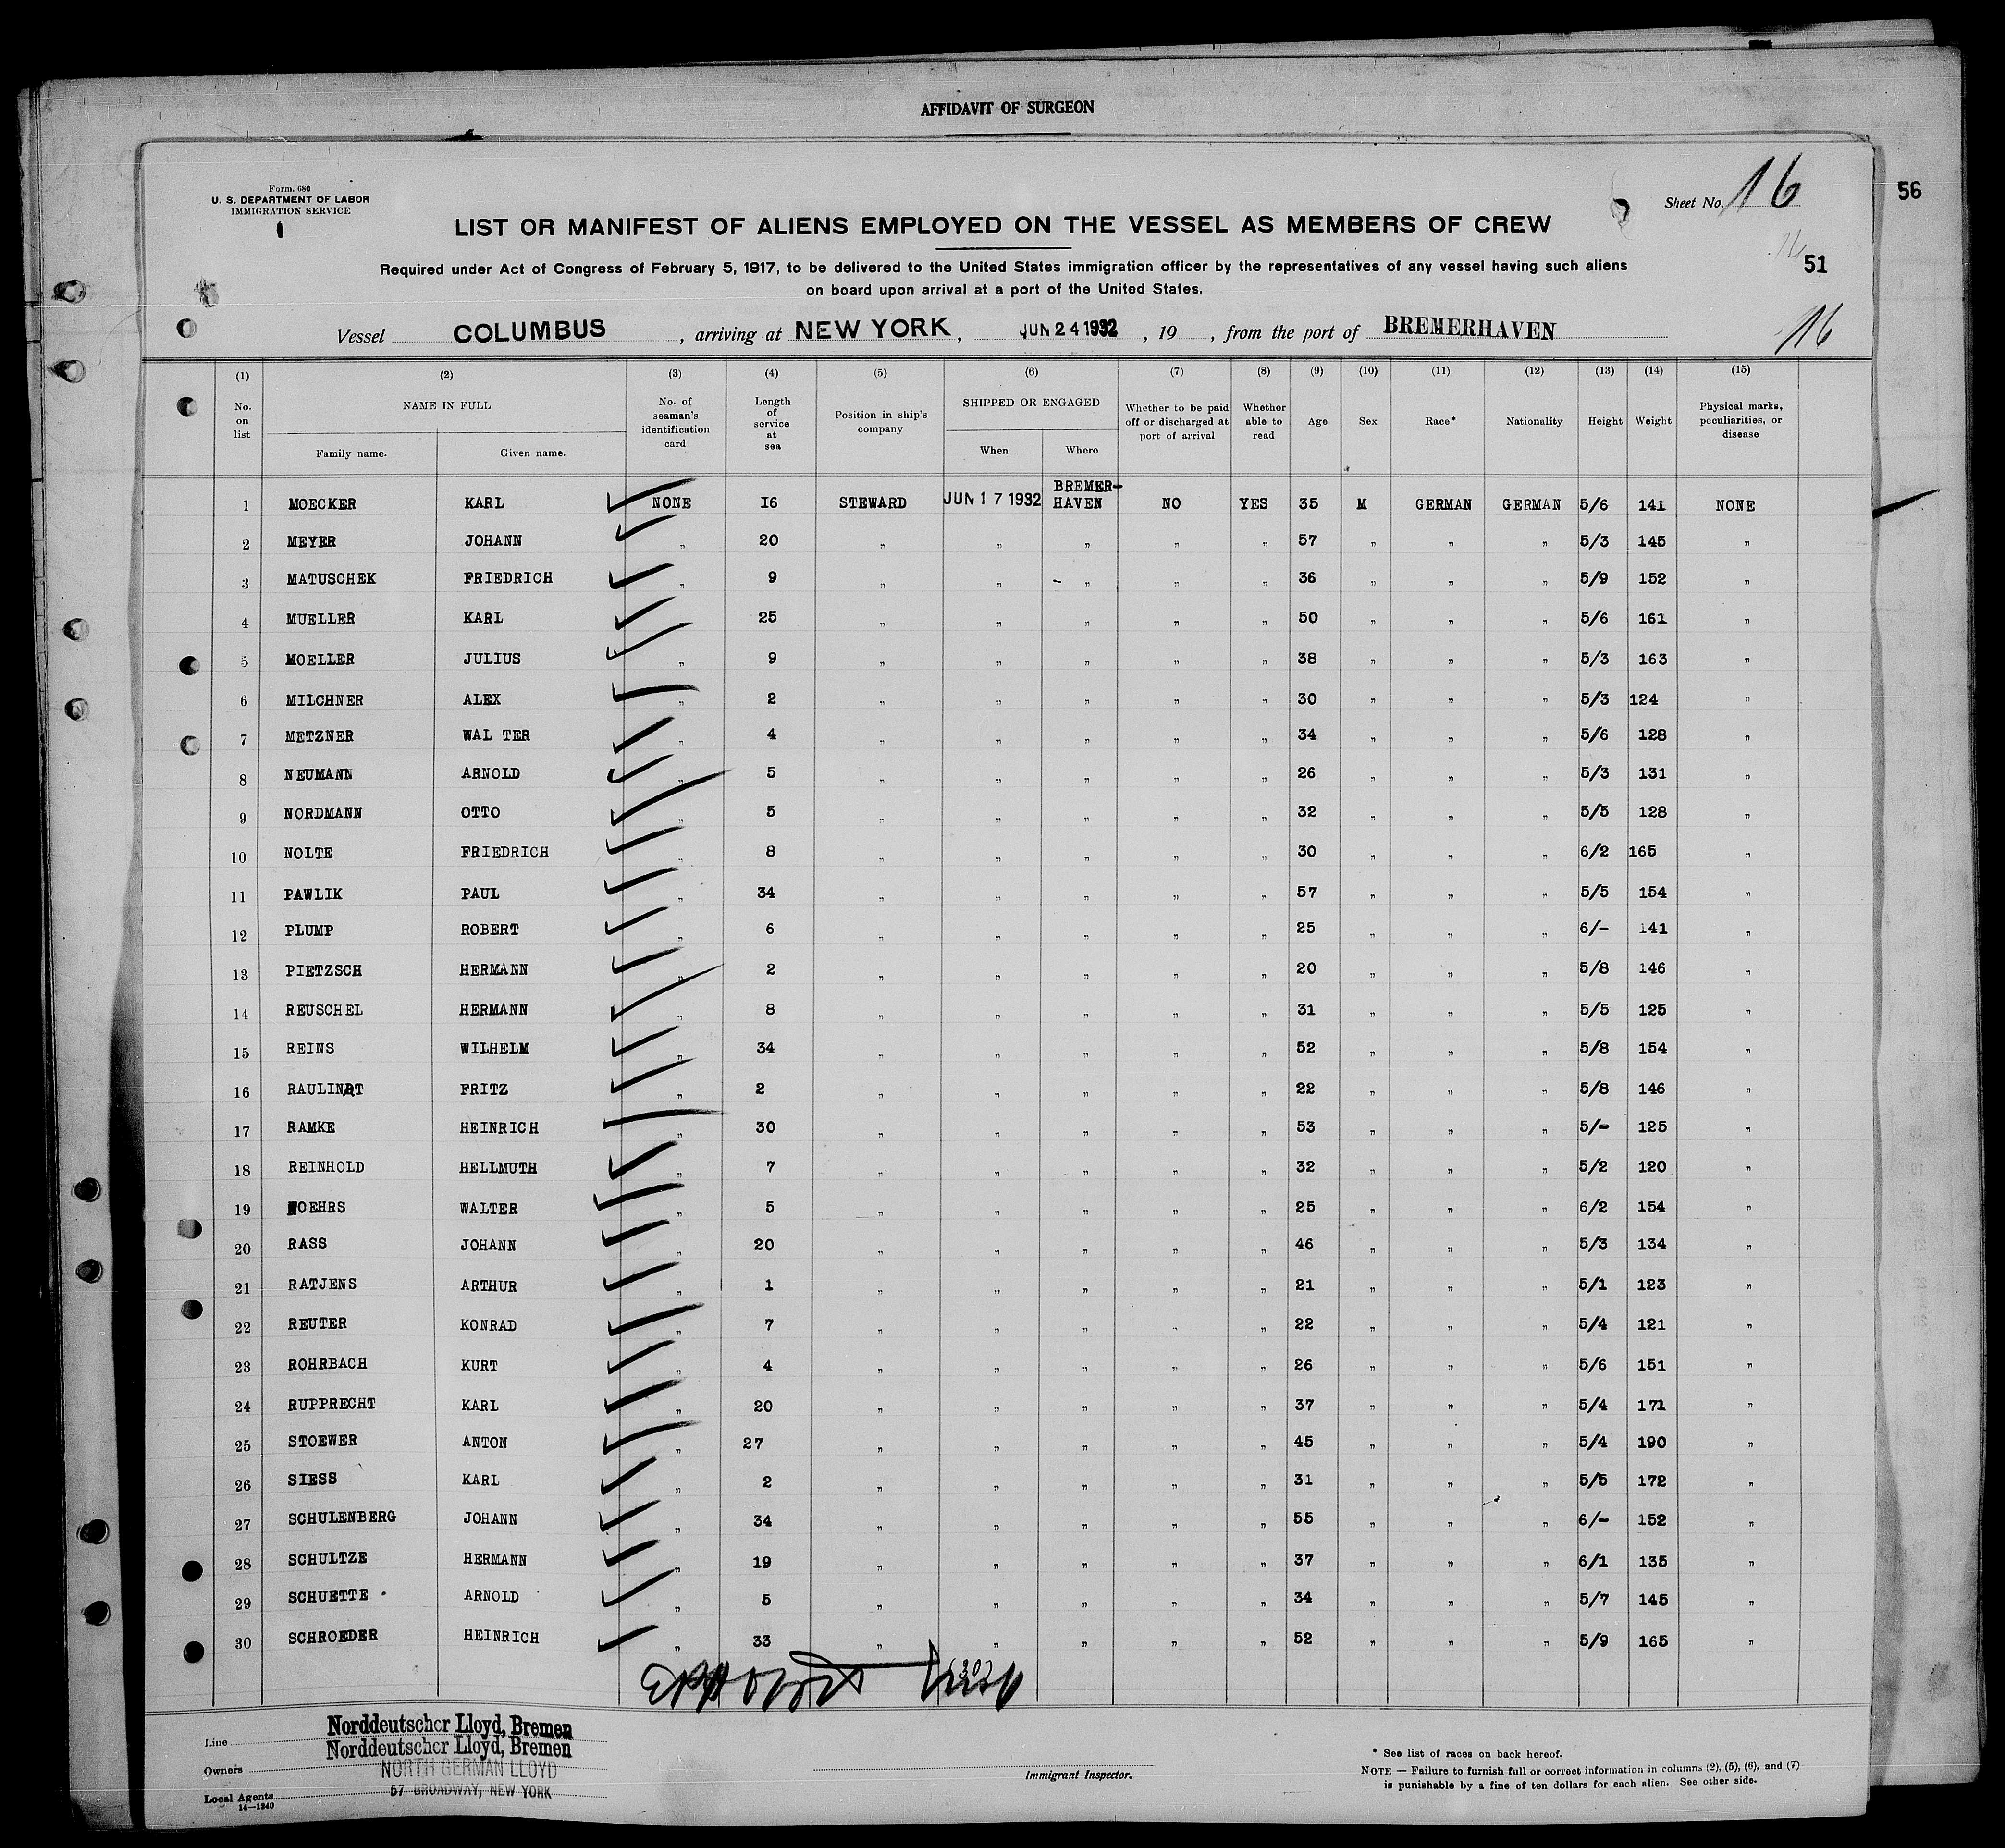 AFFIDAVIT OF SURGEON
Form. 680
U. S. DEPARTMENT OF LABOR
IMMIGRATION SERVICE
Sheet No. 16
56
LIST OR MANIFEST OF ALIENS EMPLOYED ON THE VESSEL AS MEMBERS OF CREW
16
51
Required under Act of Congress of February 5, 1917, to be delivered to the United States immigration officer by the representatives of any vessel having such aliens
on board upon arrival at a port of the United States.
Vessel COLUMBUS , arriving at NEW YORK , JUN 24 1932 , 19 , from the port of BREMERHAVEN
16
(1) (2) (3) (4) (5) (6) (7) (8) (9) (10) (11) (12) (13) (14) (15)
No. on list NAME IN FULL Family name. Given name. No. of seaman's identification card Length of service at sea Position in ship's company SHIPPED OR ENGAGED When Where Whether to be paid off or discharged at port of arrival Whether able to read Age Sex Race* Nationality Height Weight Physical marks, peculiarities, or disease
1 MOECKER KARL NONE 16 STEWARD JUN 17 1932 BREMER-HAVEN NO YES 35 M GERMAN GERMAN 5/6 141 NONE
2 MEYER JOHANN " 20 " " " " " 57 " " " 5/3 145 "
3 MATUSCHEK FRIEDRICH " 9 " " " " " 36 " " " 5/9 152 "
4 MUELLER KARL " 25 " " " " " 50 " " " 5/6 161 "
5 MOELLER JULIUS " 9 " " " " " 38 " " " 5/3 163 "
6 MILCHNER ALEX " 2 " " " " " 30 " " " 5/3 124 "
7 METZNER WAL TER " 4 " " " " " 34 " " " 5/6 128 "
8 NEUMANN ARNOLD " 5 " " " " " 26 " " " 5/3 131 "
9 NORDMANN OTTO " 5 " " " " " 32 " " " 5/5 128 "
10 NOLTE FRIEDRICH " 8 " " " " " 30 " " " 6/2 165 "
11 PAWLIK PAUL " 34 " " " " " 57 " " " 5/5 154 "
12 PLUMP ROBERT " 6 " " " " " 25 " " " 6/- 141 "
13 PIETZSCH HERMANN " 2 " " " " " 20 " " " 5/8 146 "
14 REUSCHEL HERMANN " 8 " " " " " 31 " " " 5/5 125 "
15 REINS WILHELM " 34 " " " " " 52 " " " 5/8 154 "
16 FRITZ " 2 " " " " " 22 " " " 5/8 146 "
17 RAMKE HEINRICH " 30 " " " " " 53 " " " 5/- 125 "
18 REINHOLD HELLMUTH " 7 " " " " " 32 " " " 5/2 120 "
19 WALTER " 5 " " " " " 25 " " " 6/2 154 "
20 RASS JOHANN " 20 " " " " " 46 " " " 5/3 134 "
21 RATJENS ARTHUR " 1 " " " " " 21 " " " 5/1 123 "
22 REUTER KONRAD " 7 " " " " " 22 " " " 5/4 121 "
23 ROHRBACH KURT " 4 " " " " " 26 " " " 5/6 151 "
24 RUPPRECHT KARL " 20 " " " " " 37 " " " 5/4 171 "
25 STOEWER ANTON " 27 " " " " " 45 " " " 5/4 190 "
26 SIESS KARL " 2 " " " " " 31 " " " 5/5 172 "
27 SCHULENBERG JOHANN " 34 " " " " " 55 " " " 6/- 152 "
28 SCHULTZE HERMANN " 19 " " " " " 37 " " " 6/1 135 "
29 SCHUETTE ARNOLD " 5 " " " " " 34 " " " 5/7 145 "
30 SCHROEDER HEINRICH " 33 " " " " " 52 " " " 5/9 165 "
Line Norddeutscher Lloyd, Bremen
Owners Norddeutscher Lloyd, Bremen
NORTH GERMAN LLOYD
Local Agents 57 BROADWAY, NEW YORK
14—1240
Immigrant Inspector.
* See list of races on back hereof.
NOTE — Failure to furnish full or correct information in columns (2), (5), (6), and (7)
is punishable by a fine of ten dollars for each alien. See other side.